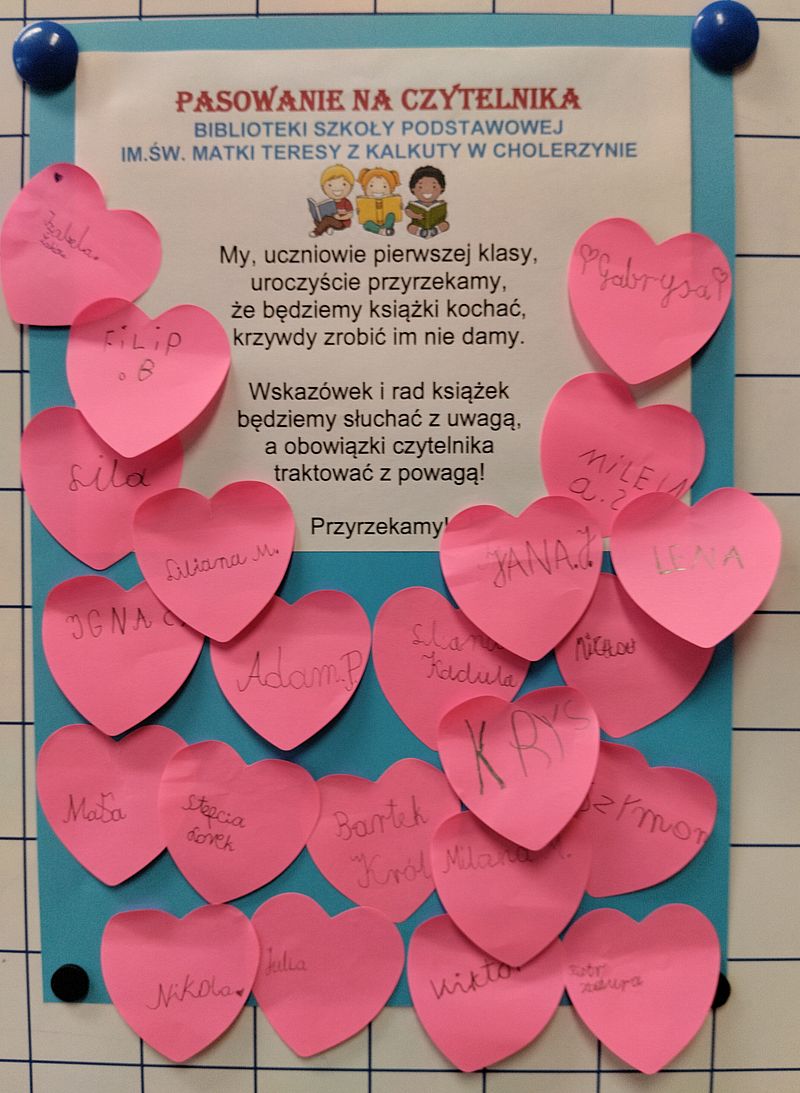 PASOWANIE NA CZYTELNIKA
BIBLIOTEKI SZKOŁY PODSTAWOWEJ
IM.ŚW. MATKI TERESY Z KALKUTY W CHOLERZYNIE
My, uczniowie pierwszej klasy,
uroczyście przyrzekamy,
że będziemy książki kochać,
krzywdy zrobić im nie damy.
Wskazówek i rad książek
będziemy słuchać z uwagą,
a obowiązki czytelnika
traktować z powagą!
Przyrzekamy!
Gabrysa
FiLiP
.B
MiLEN
a.
Lila
Liliana M.
JANA.J.
LENA
IGNAC
Adam.P.
KRYS
Stępcia
Bartek
Król
Milana M.
SZYmon
NiKola
Julia
Wikto